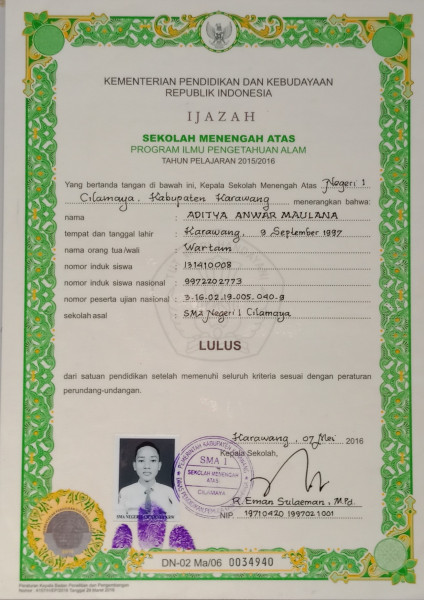 KEMENTERIAN PENDIDIKAN DAN KEBUDAYAAN
REPUBLIK INDONESIA
IJAZAH
SEKOLAH MENENGAH ATAS
PROGRAM ILMU PENGETAHUAN ALAM
TAHUN PELAJARAN 2015/2016
Yang bertanda tangan di bawah ini, Kepala Sekolah Menengah Atas Negeri 1
Cilamaya, Kabupaten Karawang menerangkan bahwa:
nama : ADITYA ANWAR MAULANA
tempat dan tanggal lahir : Karawang, 9 September 1997
nama orang tua/wali : Wartam
nomor induk siswa : 131410008
nomor induk siswa nasional : 9972202773
nomor peserta ujian nasional : 3-16-02-19-005-040-9
sekolah asal : SMA Negeri 1 Cilamaya
LULUS
dari satuan pendidikan setelah memenuhi seluruh kriteria sesuai dengan peraturan
perundang-undangan.
Karawang, 07 Mei 2016
Kepala Sekolah,
SMA 1
SEKOLAH MENENGAH
ATAS
CILAMAYA
R. Eman Sulaeman, M.Pd.
NIP. 19710420 199702 1 001
DN-02 Ma/06 0034940